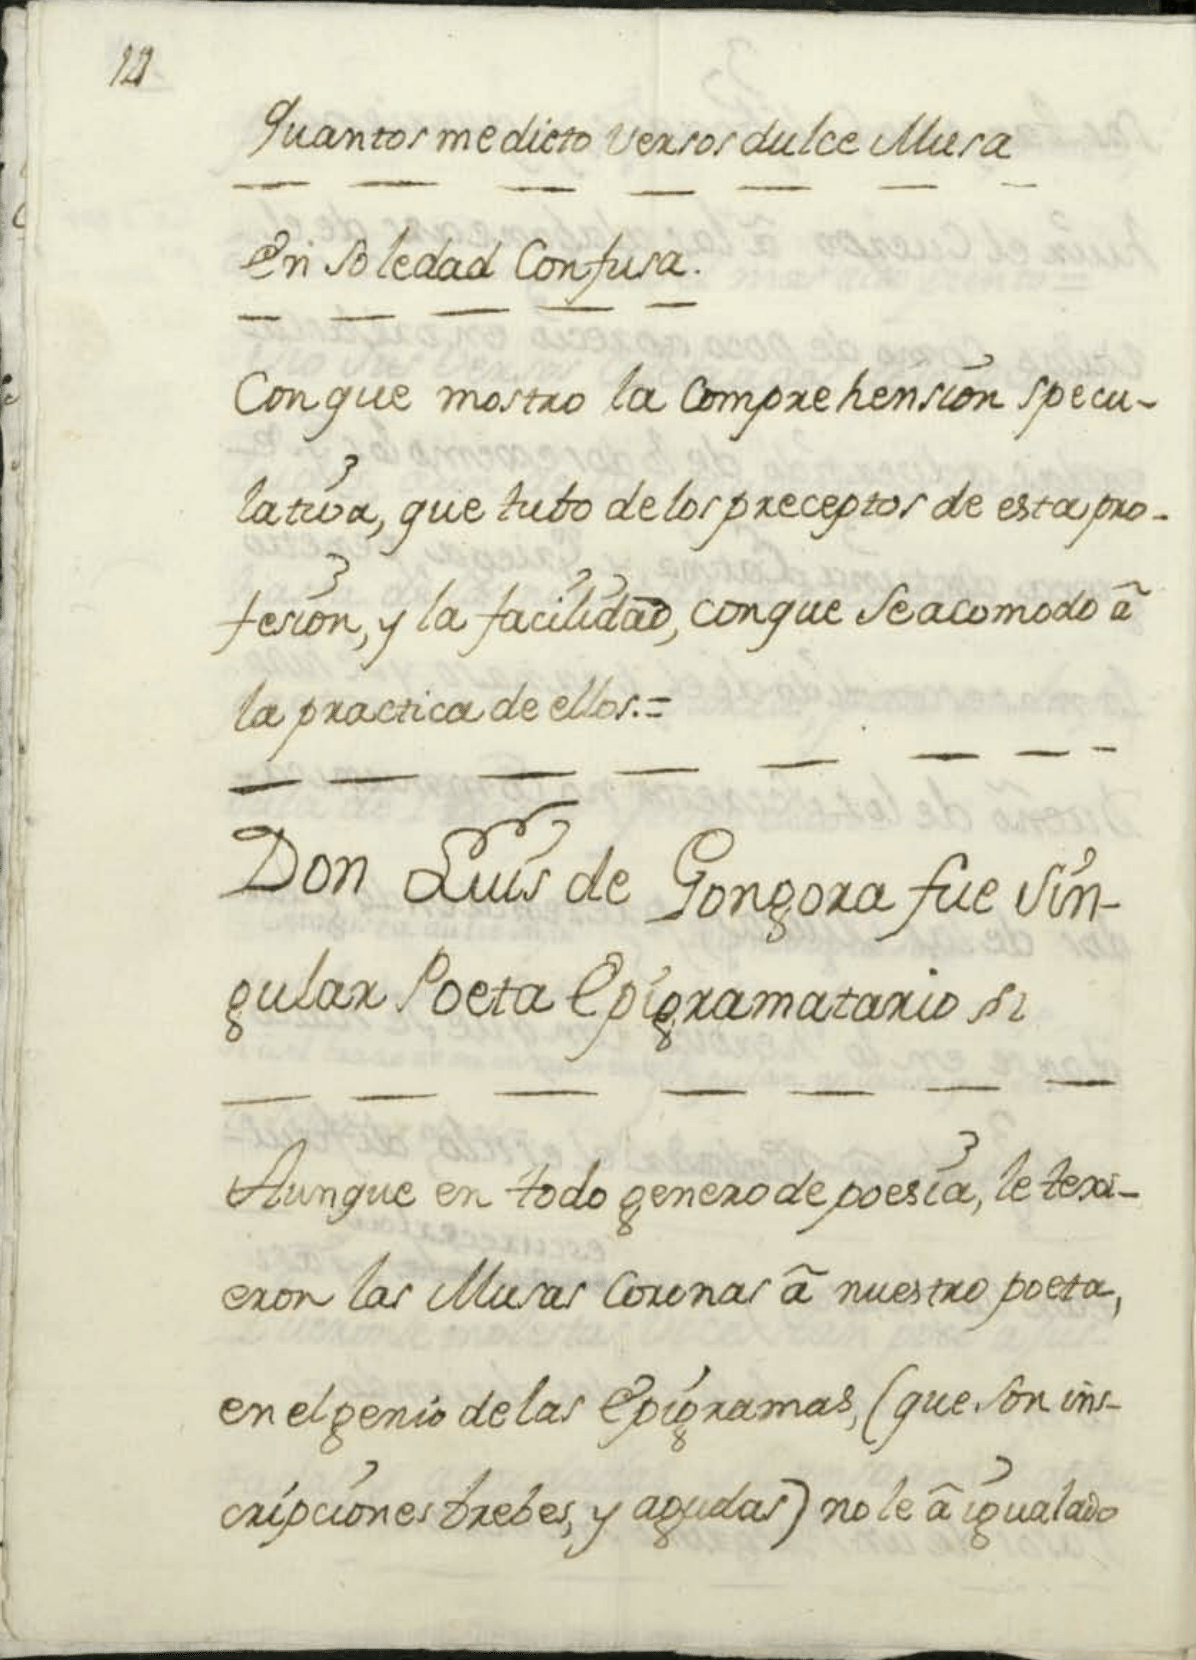 Quantos me dicto Versos dulce Musa
En soledad Confusa.
Con que mostro la Comprehension specu-
lativa, que tubo de los preceptos de esta pro-
fesion, y la facilidad, con que se acomodo ã
la practica de ellos.=
Don Luis de Gongora fue sin-
gular Poeta Epigramatario
Aunque en todo genero de poesia, le texi-
eron las Musas Coronas ã nuestro poeta,
en el genio de las Epigramas, (que son ins-
cripciones brebes, y agudas) no le ã igualado